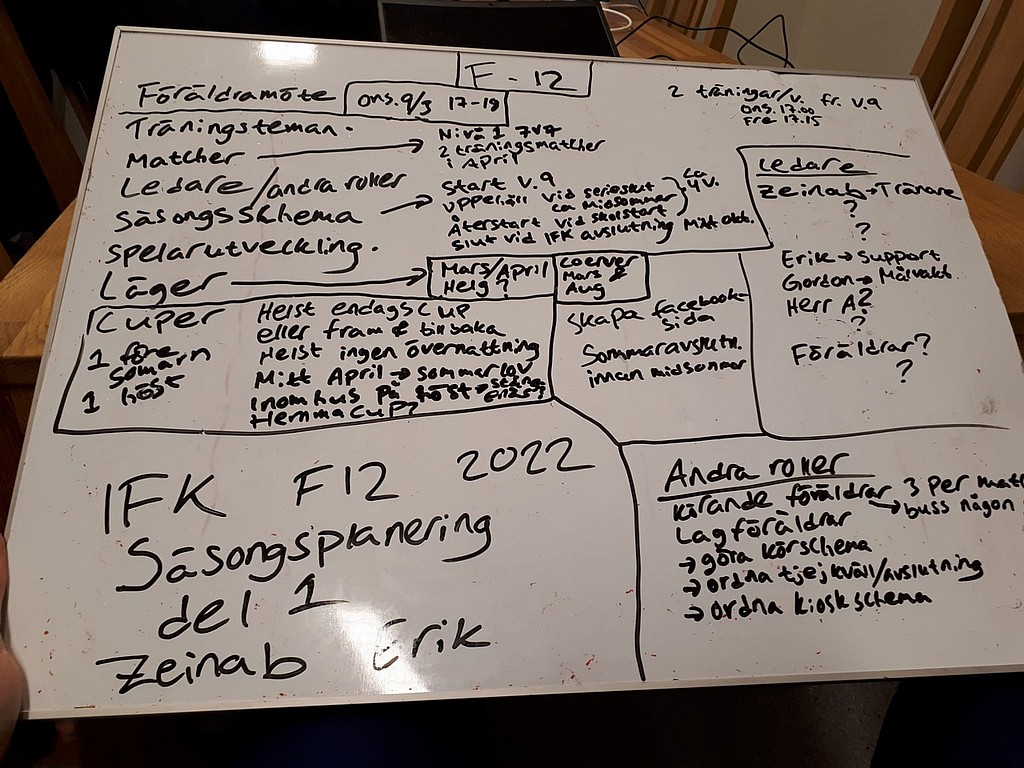 F-12
Föräldramöte ons. 9/3 17-19
2 träningar/v. fr. v.9
ons. 17.00
Fre 17.15
Träningsteman.
Matcher → Nivå 1 7v7
2 träningsmatcher
i April
Ledare/andra roller
Säsongsschema → Start v.9
Uppehåll vid serieslut
ca midsommar
ca 4v.
Återstart vid skolstart
Slut vid IFK avslutning Mitt okt.
Spelarutveckling.
Läger → Mars/April
Helg?
Coerver
Mars &
Aug
Kuper
1 före
somarn
1 höst
Helst endagscup
eller fram & tillbaka
Helst ingen övernattning
Mitt April → sommarlov
Inomhus på höst →
Hemmacup?
Skapa facebook-
sida
Sommaravslutn.
innan midsommar
Ledare
Zeinab → Tränare
?
?
Erik → Support
Gordon → Målvakt
Herr A?
?
Föräldrar?
?
IFK F12 2022
Säsongsplanering
del 1
Zeinab Erik
Andra roller
Körande föräldrar → 3 per mat
buss någon
Lagföräldrar
→ göra körschema
→ ordna tjejkväll/avslutning
→ ordna kioskschema